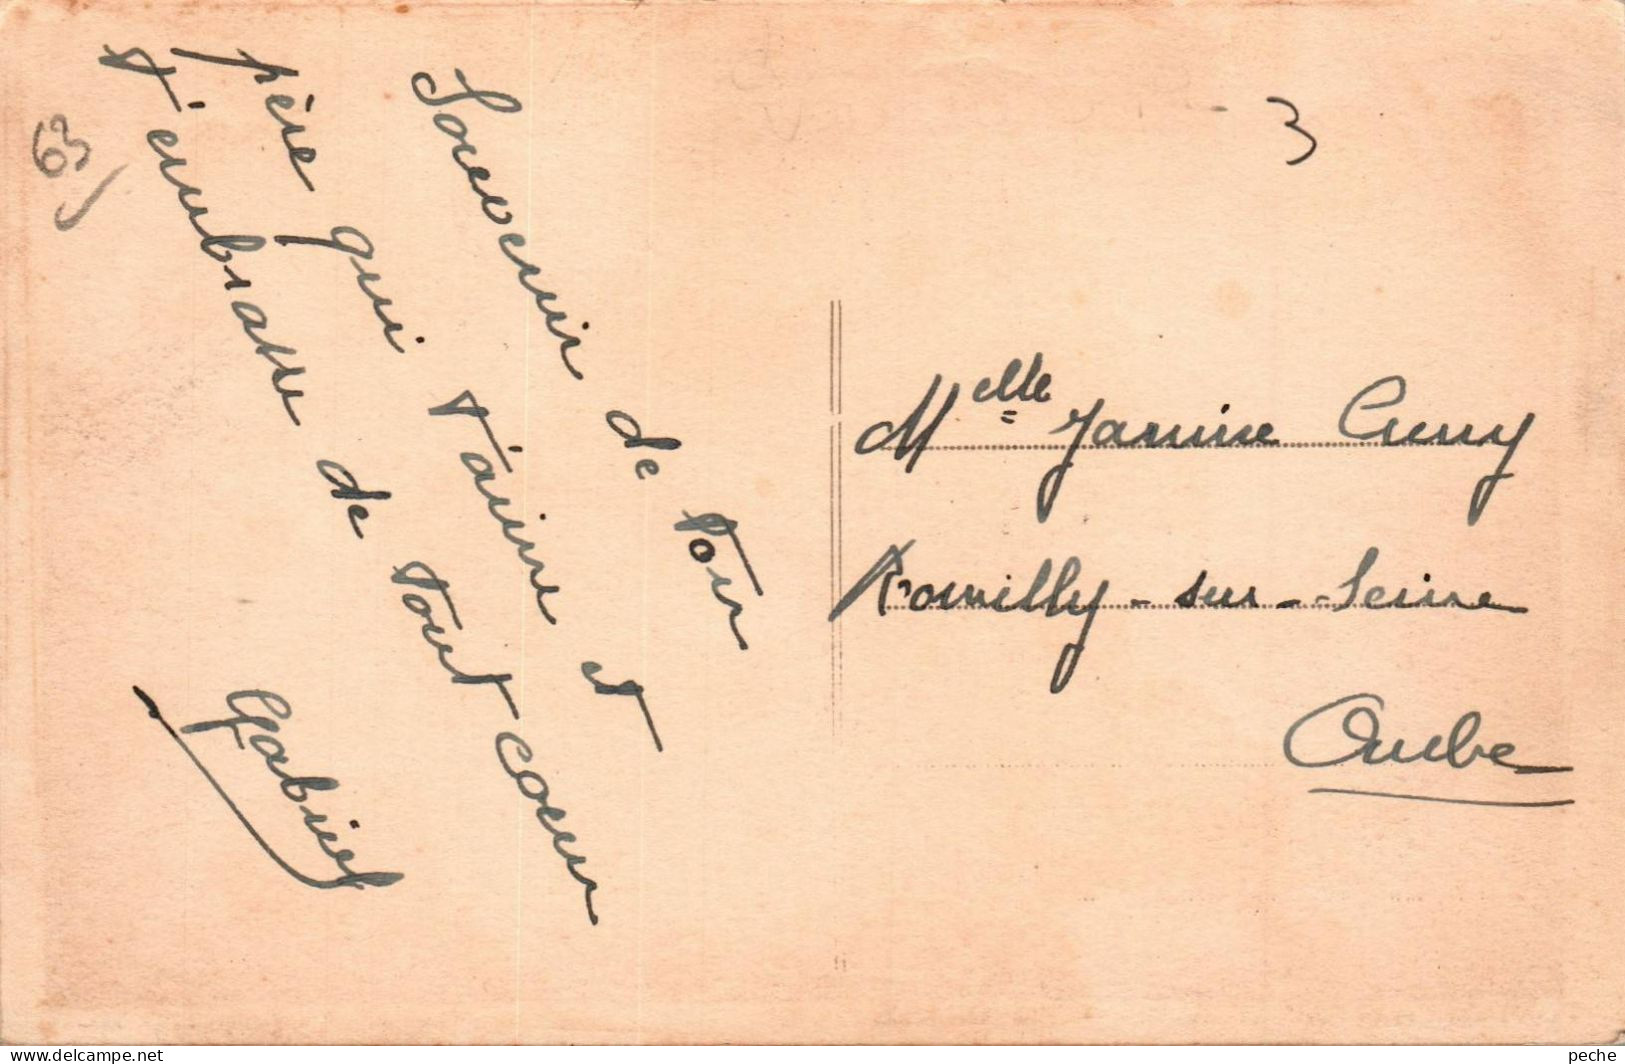 Souvenir de ton
père qui t'aime et
t'embrasse de tout coeur
Gabriel
63
3
Melle Janine Cuny
Romilly-sur-Seine
Aube
www.delcampe.net
peche